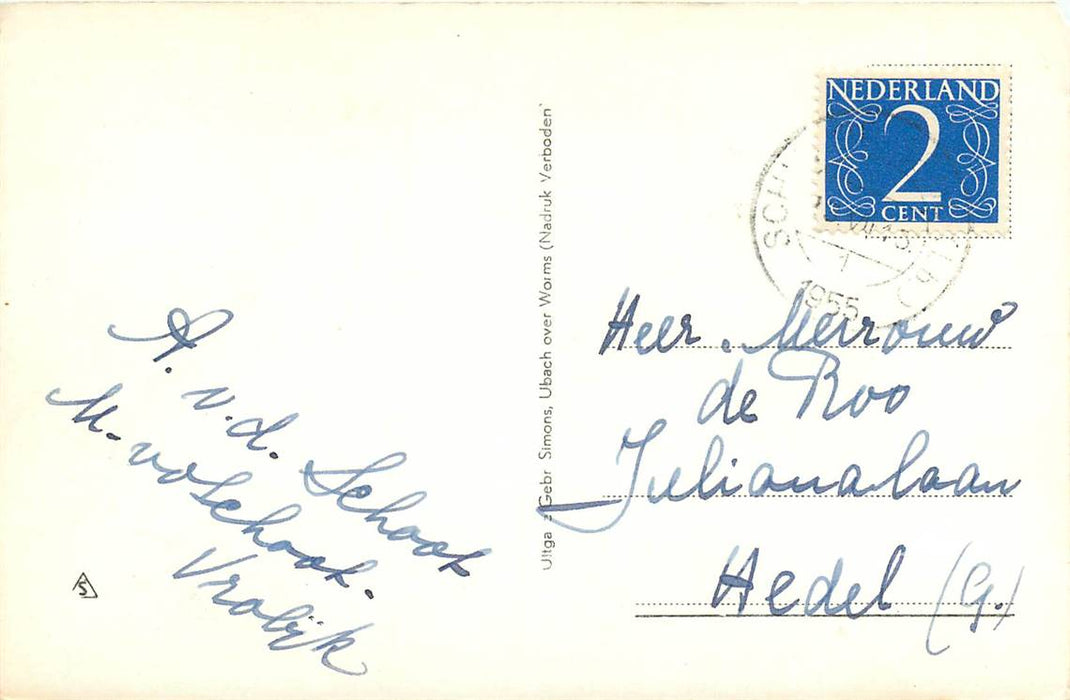 A. v.d. Schoot
M. vd Schoot.
Vrolijk
S
Uitga e Gebr Simons, Ubach over Worms (Nadruk Verboden)
NEDERLAND
2
CENT
1
1955
Heer. Merrouw
de Roo
Julianalaan
Hedel (G.)